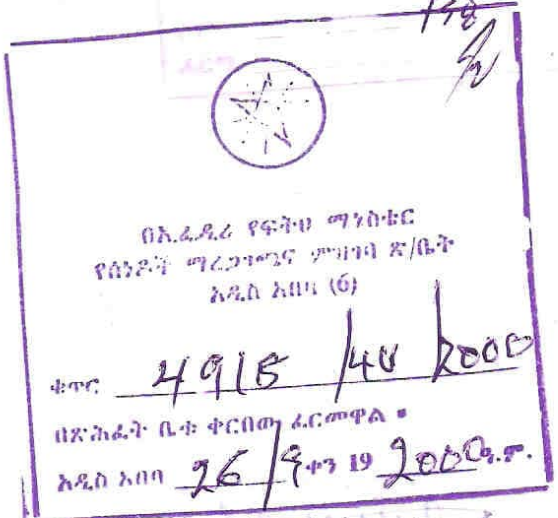 በኢ.ፌ.ዲ.ሪ የፍትህ ሚኒስቴር
የሰነዶች ማረጋገጫና ምዝገባ ጽ/ቤት
አዲስ አበባ (6)
ቁጥር 4915 /40 /2000
በጽሕፈት ቤቱ ቀርበው ፈርመዋል ።
አዲስ አበባ 26/9 ቀን 19 2000 ዓ.ም.